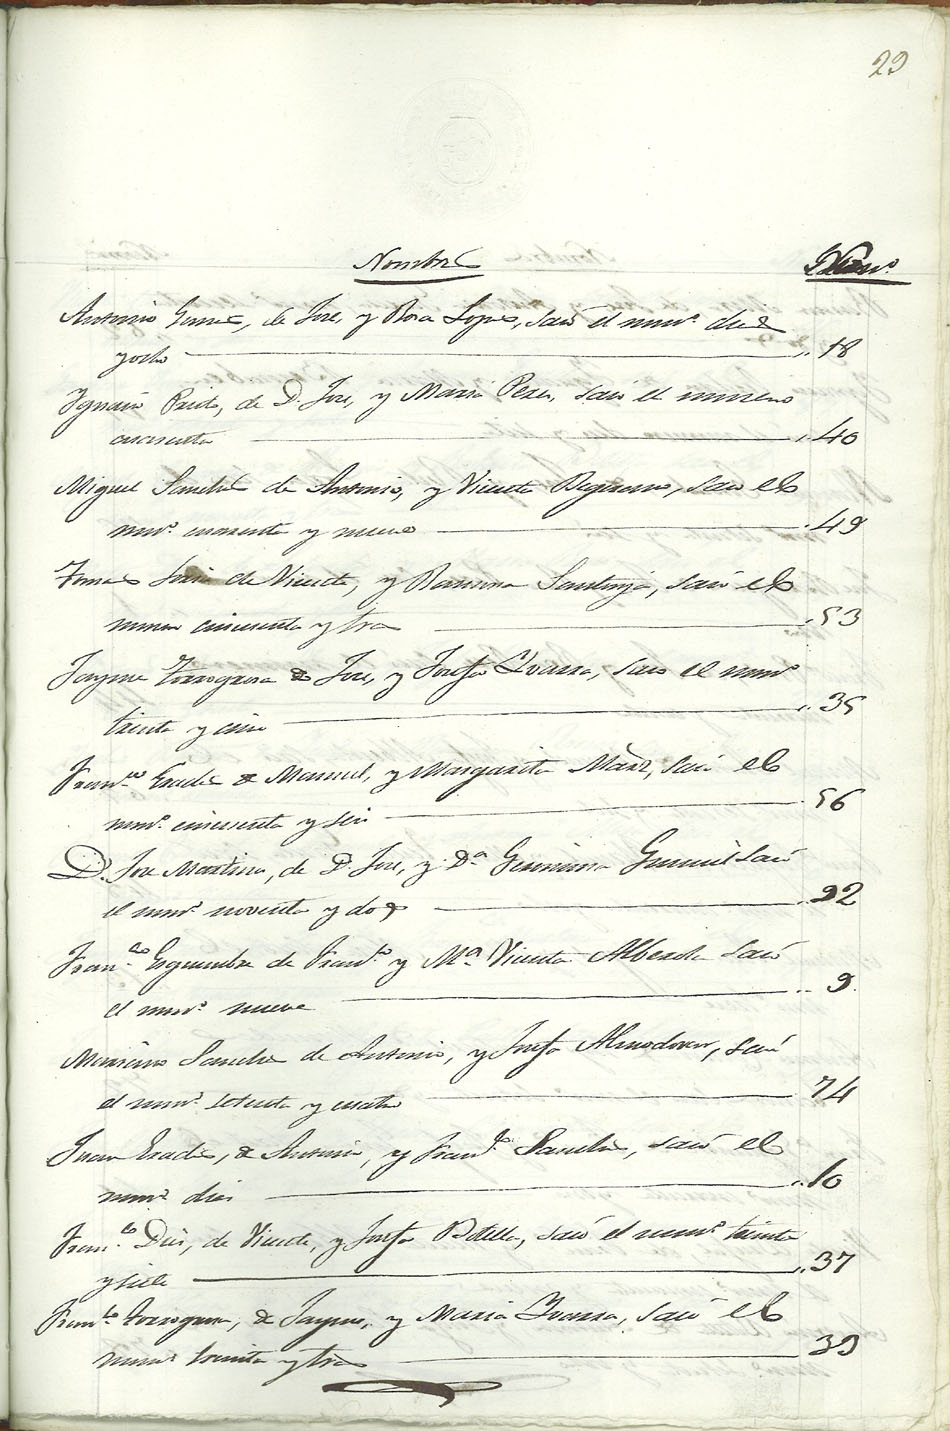 29
Nombres Num.º
Antonio Gomes, de Jose, y Rosa Lopes, sacó el num.º dies
yocho 18
Ygnacio Prieto, de D. Jose, y Maria Perez, sacó el numero
cuarenta 40
Miguel Sanches de Antonio, y Vicenta, saco el
num.º cuarenta y nueve 49
Tomas de Vicente, y Ramona Santonja, sacó el
numero cincuenta y tres 53
Jayme Torregrosa de Jose, y Josefa Yvarra, saco el num.º
treinta y cinco 35
Fran.co Erades de Manuel, y Margarita, sacó el
num.º cincuenta y seis 56
D. Jose Martines, de D. Jose, y D.ª Geronima sacó
el num.º noventa y dos 92
Fran.co Esquembre de Fran.co y M.ª Vicenta Alberola sacó
el num.º nueve 9.
Mariano Sanches de Antonio, y Josefa Almodovar, sacó
el num.º setenta y cuatro 74
Juan Erades, de Antonio, y Fran.ca Sanches, sacó el
num.º dies 10
Fran.co Dies, de Vicente, y Josefa Botella, sacó el num.º treinta
y siete 37
Fran.co Torregrosa, de Jayme, y Maria Yvarra, sacó el
num.º treinta y tres 39